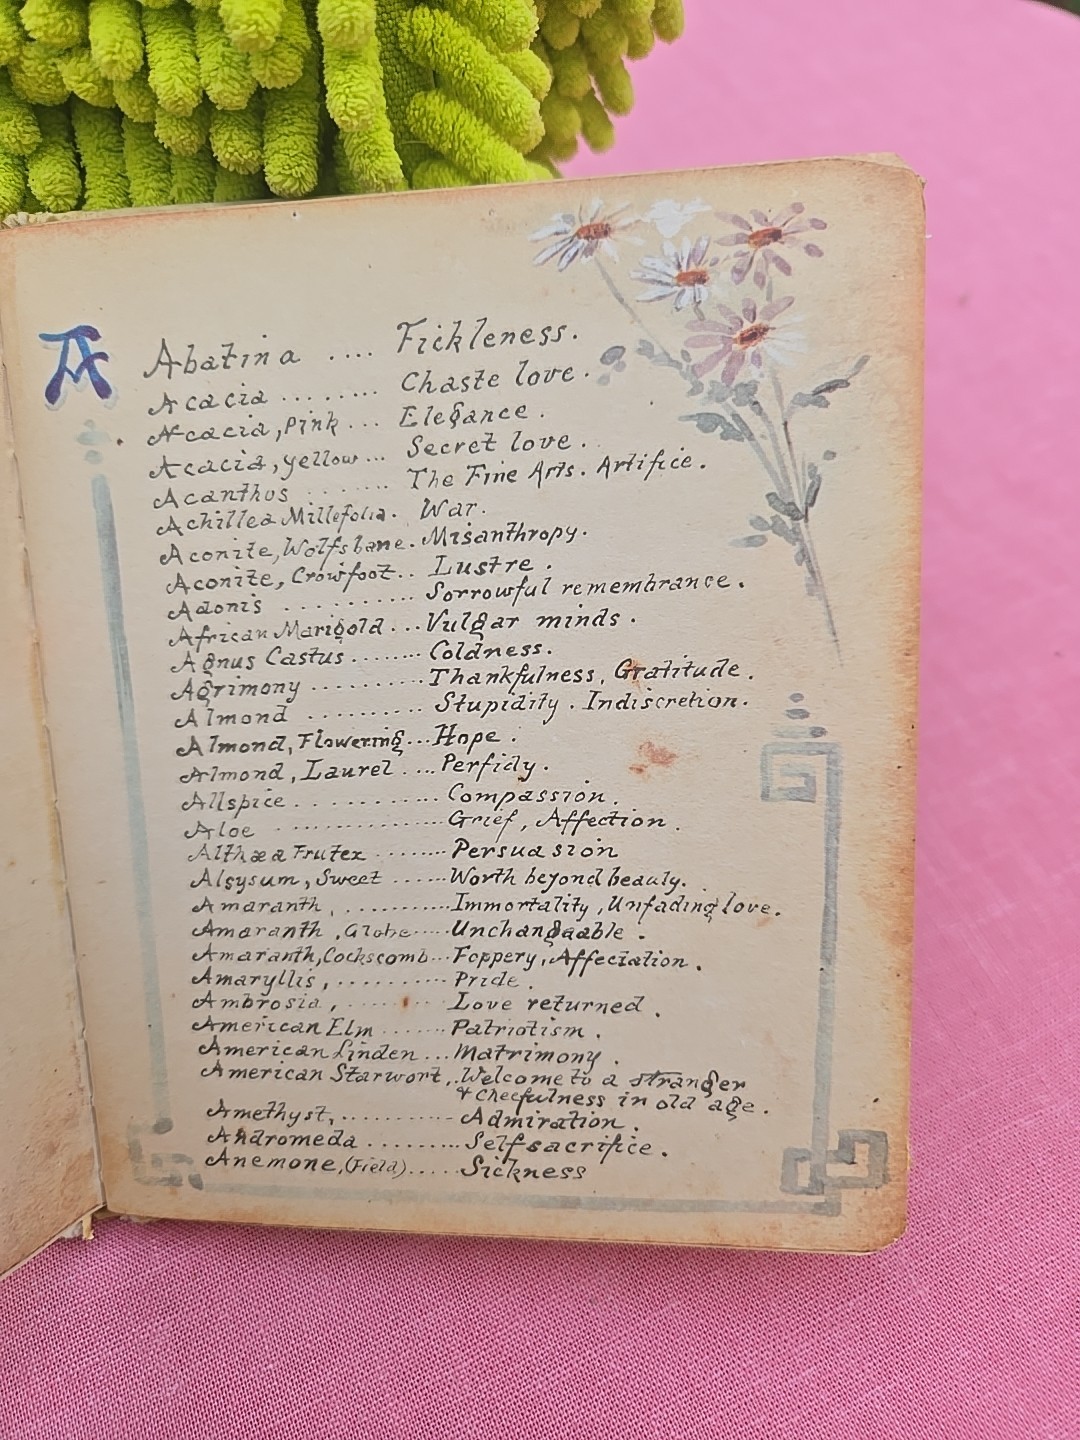 A
Abatina .... Fickleness.
Acacia ......... Chaste love.
Acacia, Pink ... Elegance.
Acacia, yellow ... Secret love.
Acanthus ........ The Fine Arts. Artifice.
Achillea Millefolia. War.
Aconite, Wolfsbane. Misanthropy.
Aconite, Crowfoot.. Lustre.
Adonis .......... Sorrowful remembrance.
African Marigold ... Vulgar minds.
Agnus Castus ........ Coldness.
Agrimony .......... Thankfulness, Gratitude.
Almond .......... Stupidity. Indiscretion.
Almond, Flowering ... Hope.
Almond, Laurel .... Perfidy.
Allspice ............ Compassion.
Aloe ............... Grief, Affection.
Althæa Frutex ........ Persuasion
Alsysum, Sweet ...... Worth beyond beauty.
Amaranth, ........... Immortality, Unfading love.
Amaranth, Globe ..... Unchangaable.
Amaranth, Cockscomb... Foppery, Affectation.
Amaryllis, .......... Pride.
Ambrosia, .......... Love returned.
American Elm ....... Patriotism.
American Linden ... Matrimony.
American Starwort, .. Welcome to a stranger
& cheefulness in old age.
Amethyst, .......... Admiration.
Andromeda ......... Selfsacrifice.
Anemone, (Field) ..... Sickness